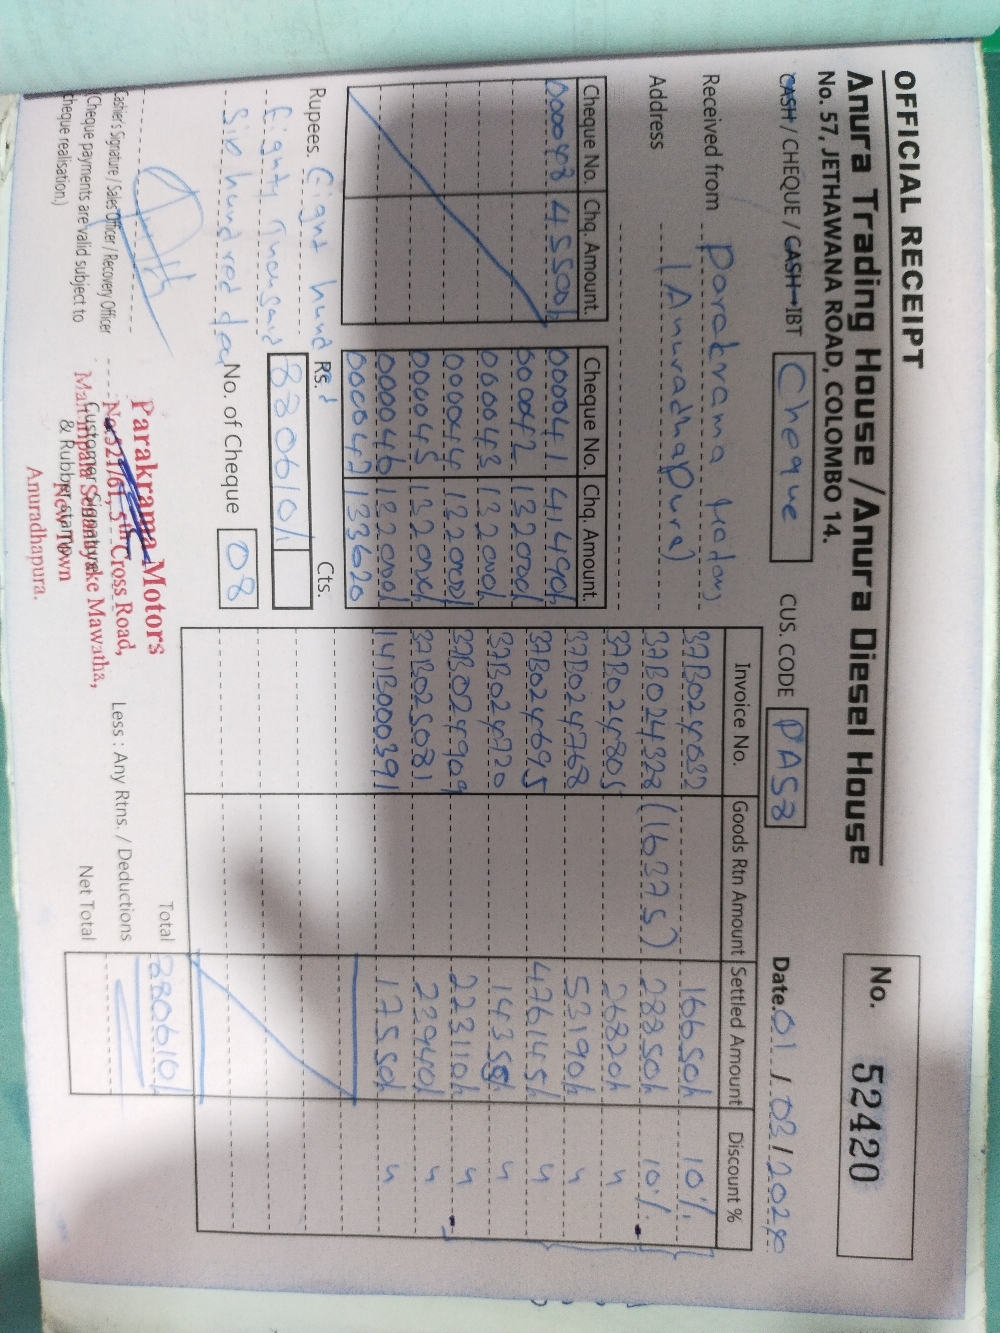 OFFICIAL RECEIPT
Anura Trading House / Anura Diesel House
No. 57, JETHAWANA ROAD, COLOMBO 14.
No. 52420
CASH / CHEQUE / CASH IBT Cheque CUS. CODE PAS8 Date. 01 / 03 / 2024
Received from Parakrama Motors
Address (Anuradhapura)
Cheque No. Chq. Amount. Cheque No. Chq. Amount.
000048 45500/ 000041 41490/
000042 132000/
000043 132000/
000044 132000/
000045 132000/
000046 132000/
000047 133620
Invoice No. Goods Rtn Amount Settled Amount Discount %
37B024032 16650/ 10%
37B024328 (16375) 28850/ 10%
37B024805 26820/ "
37B024768 53190/ "
37B024695 476145/ "
37B024720 14355/ "
37B024909 223110/ "
37B025081 23940/ "
141B000391 17550/ "
Rupees. Eight hund Rs. Cts.
Eighty thousand 880610/
Six hundred
No. of Cheque 08
Total 880610/
Less : Any Rtns. / Deductions
Net Total
Cashier's Signature / Sales Officer / Recovery Officer
(Cheque payments are valid subject to
cheque realisation.)
Customer Signature
& Rubber stamp
Parakrama Motors
No: 521/61, 5th Cross Road,
Maithripala Senanayake Mawatha,
New Town
Anuradhapura.